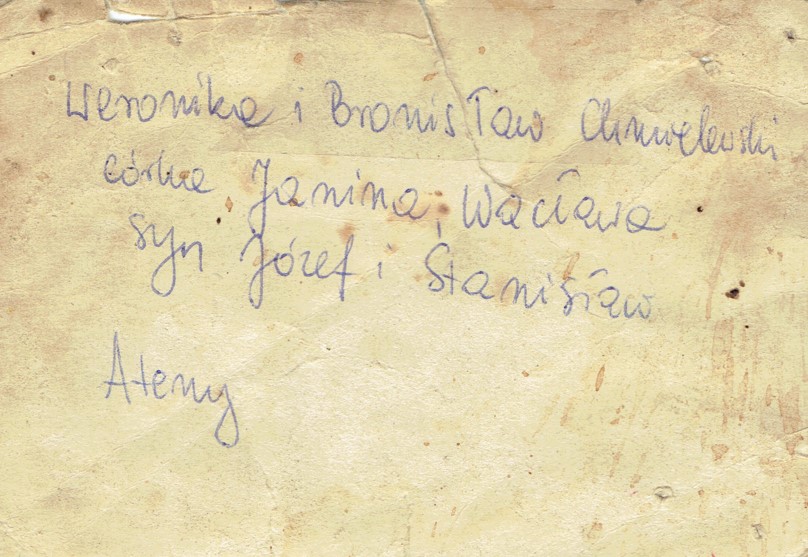 Weronika i Bronisław Chmielewski
córka Janina, Wacława
syn Józef i Stanisław
Ateny